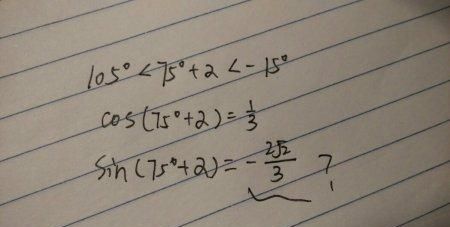 105° < 75° + 2 < -15°
cos(75° + 2) = 1/3
sin(75° + 2) = - 2√2/3 ?